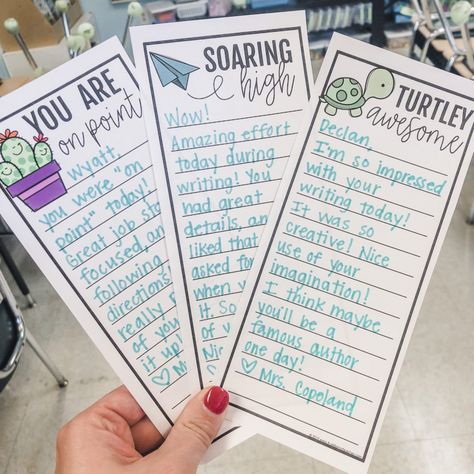 YOU ARE
on point
Wyatt,
you were "on
point" today!
Great job st
focused, an
following
directions
really
of you
it up!
Mr
SOARING
high
Wow!
Amazing effort
today during
writing! You
had great
details, an
liked that
asked fo
when y
it. S
of
Ni
TURTLEY
awesome
Declan,
I'm so impressed
with your
writing today!
It was so
creative! Nice
use of your
imagination!
I think maybe
you'll be a
famous author
one day!
♡ Mrs. Copeland